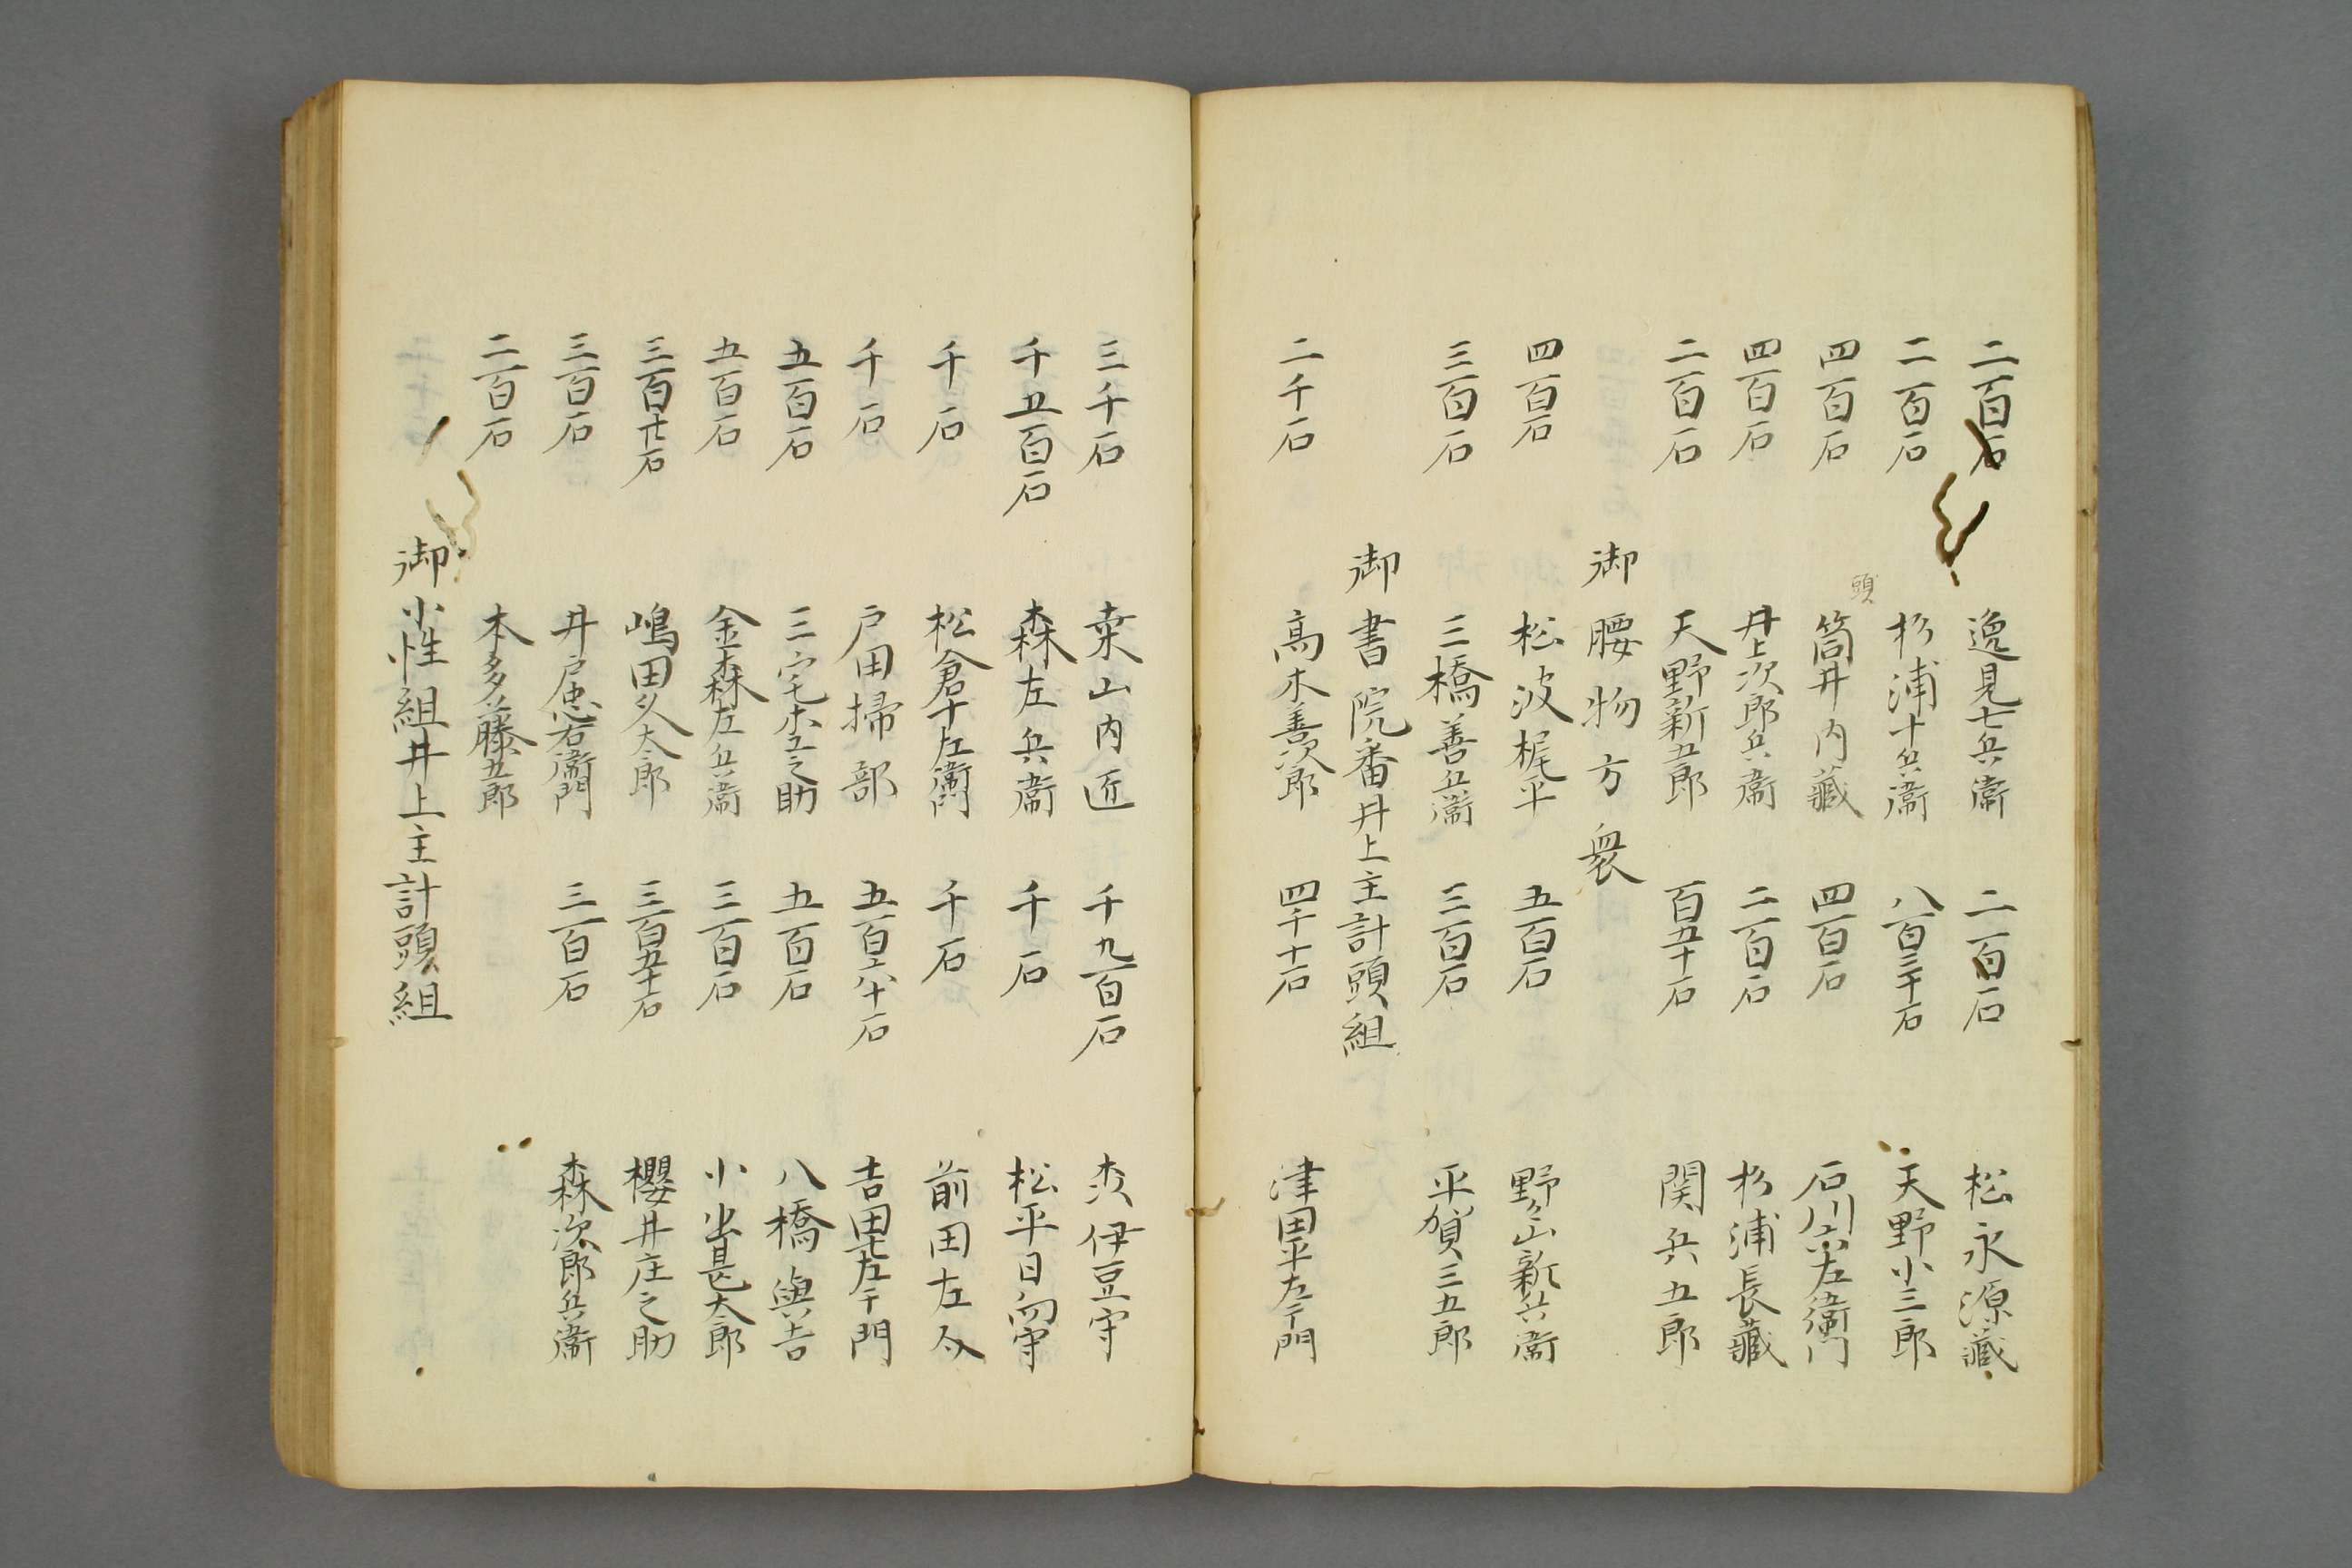 二百石 逸見七兵衛 二百石 松永源藏
二百石 杉浦十兵衛 八百三十石 天野小三郎
頭
四百石 筒井内藏 四百石 石川六左衛門
四百石 井上次郎兵衛 二百石 杉浦長藏
二百石 天野新五郎 百五十石 関兵五郎
御腰物方衆
四百石 松波梶平 五百石 野山新兵衛
三百石 三橋善兵衛 三百石 平賀三五郎
御書院番井上主計頭組
二千石 高木善次郎 四千十石 津田平左エ門
三千石 桒山内匠 千九百石 伊豆守
千五百石 森左兵衛 千石 松平日向守
千石 松倉十左衛門 千石 前田左
千石 戸田掃部 五百六十石 吉田七左エ門
五百石 三宅 之助 五百石 八橋與吉
五百石 金森左兵衛 三百石 小 甚太郎
三百廿石 嶋田久太郎 三百五十石 櫻井庄之助
三百石 井戸忠右衛門 三百石 森次郎兵衛
二百石 本多藤五郎
御小性組井上主計頭組